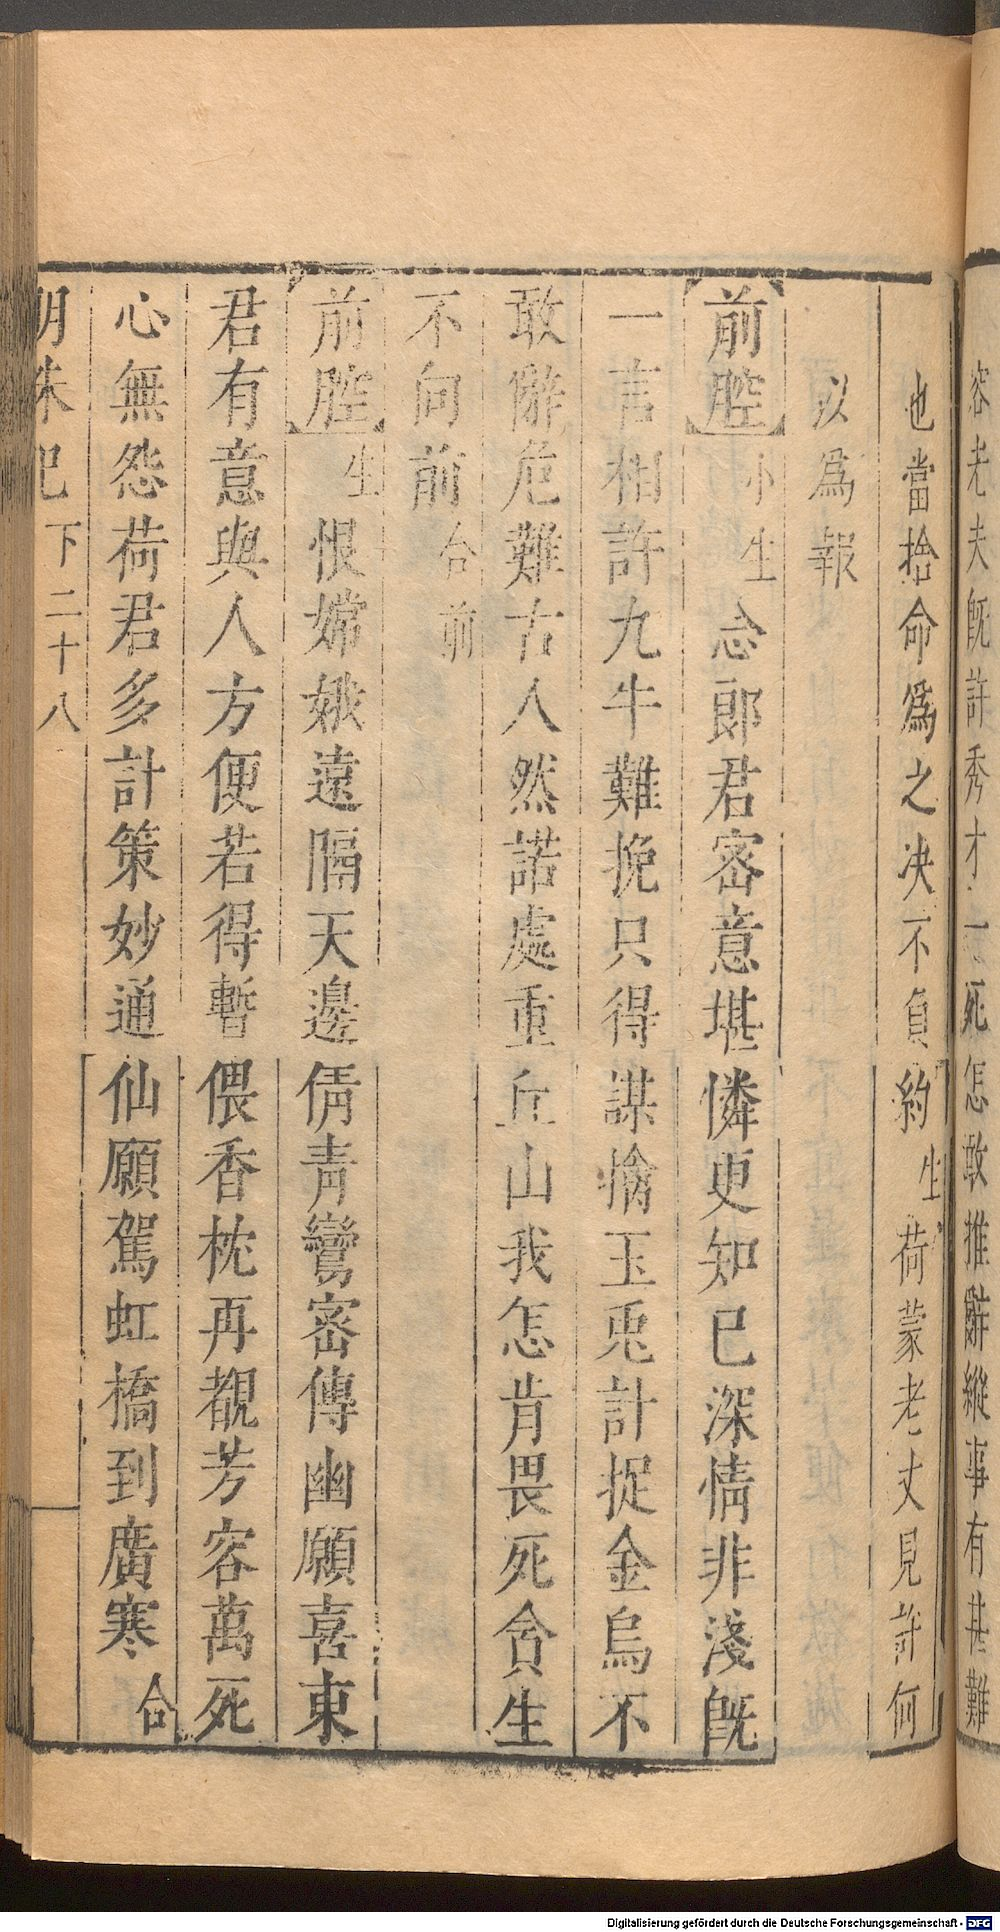 容老夫既許秀才一死怎敢推辭縱事有甚難
也當捨命爲之决不負約生荷蒙老丈見許何
以爲報
前腔小生念郎君密意堪憐更知已深情非淺旣
一言相許九牛難挽只得謀擒玉兎計捉金烏不
敢辭危難古人然諾處重丘山我怎肯畏死貪生
不向前合前
前腔生恨嫦娥遠隔天邊倩青鸞密傳幽願喜東
君有意與人方便若得暫偎香枕再覩芳容萬死
心無怨荷君多計策妙通仙願駕虹橋到廣寒合
明珠記下二十八
Digitalisierung gefördert durch die Deutsche Forschungsgemeinschaft - DFG